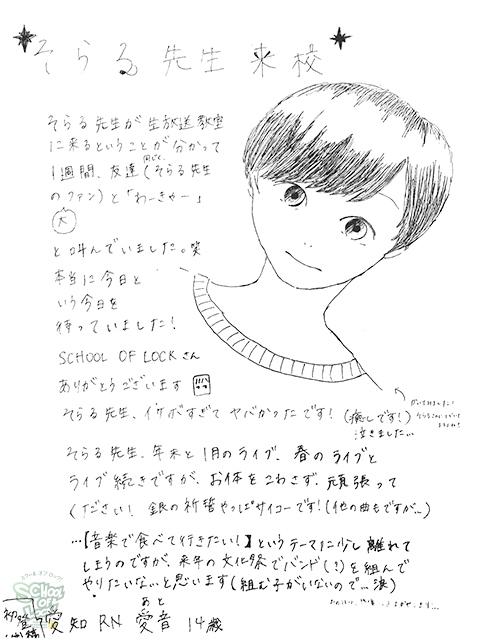 そらる先生来校
そらる先生が生放送教室
に来るということが分かって
1週間、友達(同じくそらる先生
のファン)と「わーきゃー」
大
と叫んでいました。笑
本当に今日と
いう今日を
待っていました!
SCHOOL OF LOCKさん
ありがとうございます
そらる先生、イケボすぎてヤバかったです!(癒しです!)
泣きました…
そらる先生、年末と1月のライブ、春のライブと
ライブ続きですが、お体をこわさず、頑張って
ください! 銀の祈誓やっぱサイコーです!(他の曲もですが…)
…【音楽で食べて行きたい!】というテーマに少し離れて
しまうのですが、来年の文化祭でバンド(!)を組んで
やりたいな…と思います(組む子がいないので…涙)
スクールオブロック!
SCHOOL OF LOCK!
愛知 RN 愛音 14歳
あと